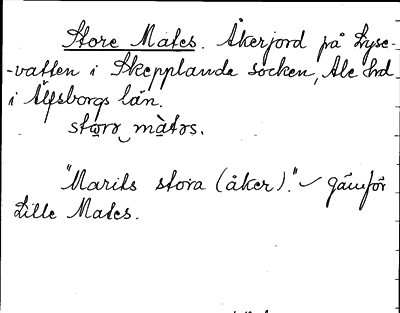 Store Mates. Åkerjord på Lyse-
-vatten i Skepplanda socken, Ale hrd
i Älfsborgs län.
stω̲rɔ‿mὰtɔs.
"Marits stora (åker)." ✓ Jämför
Lille Mates.